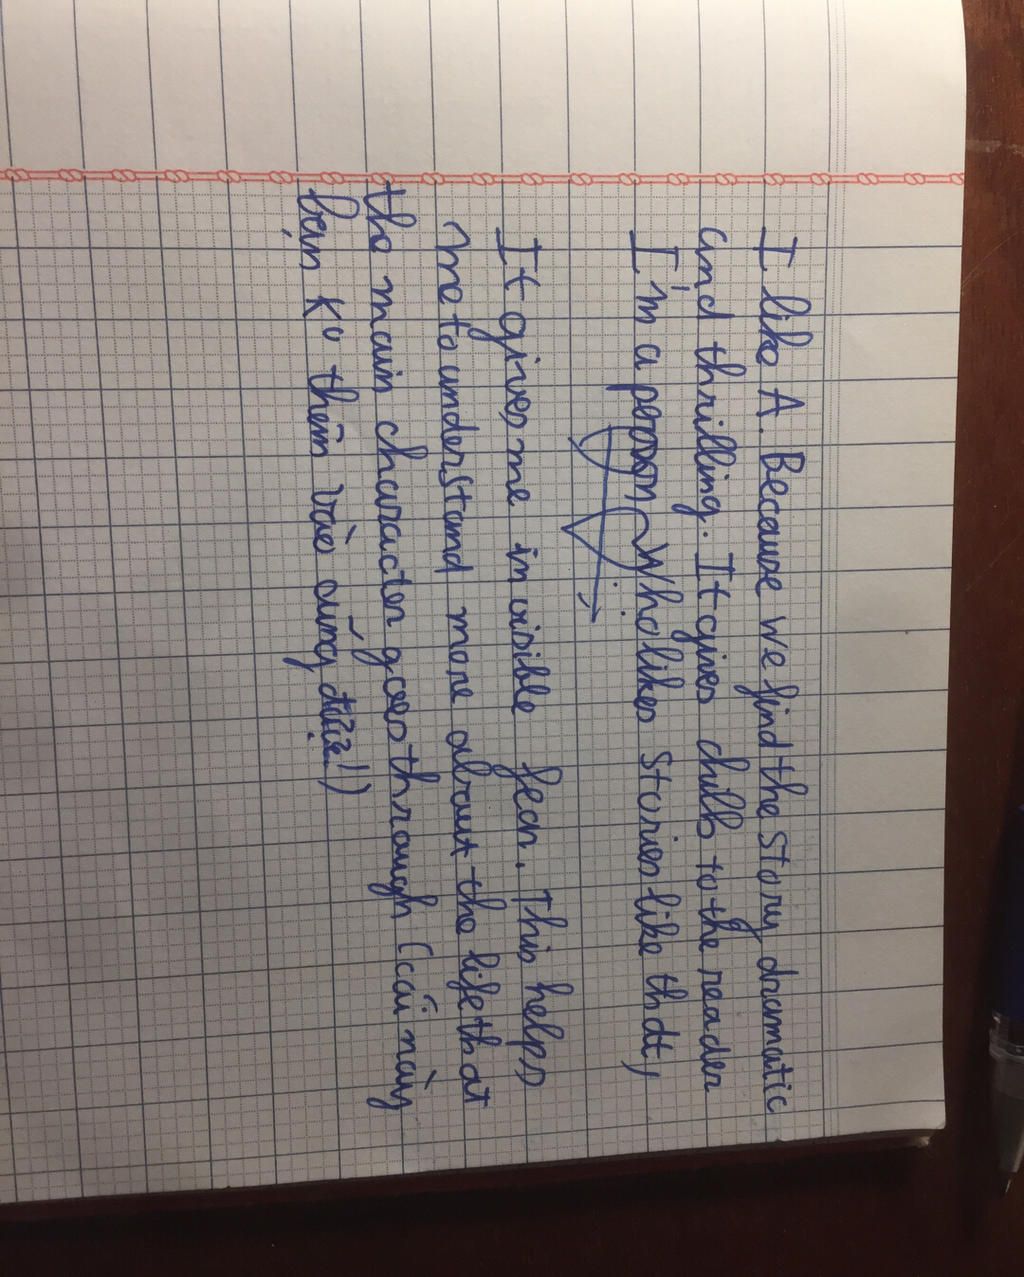 I like A. Because we find the story dramatic
and thrilling. It gives chills to the reader
I'm a person who likes stories like that,
It gives me invisible fear. This helps
me to understand more about the life that
the main character goes through (cái này
bạn ko thêm vào cũng được!)